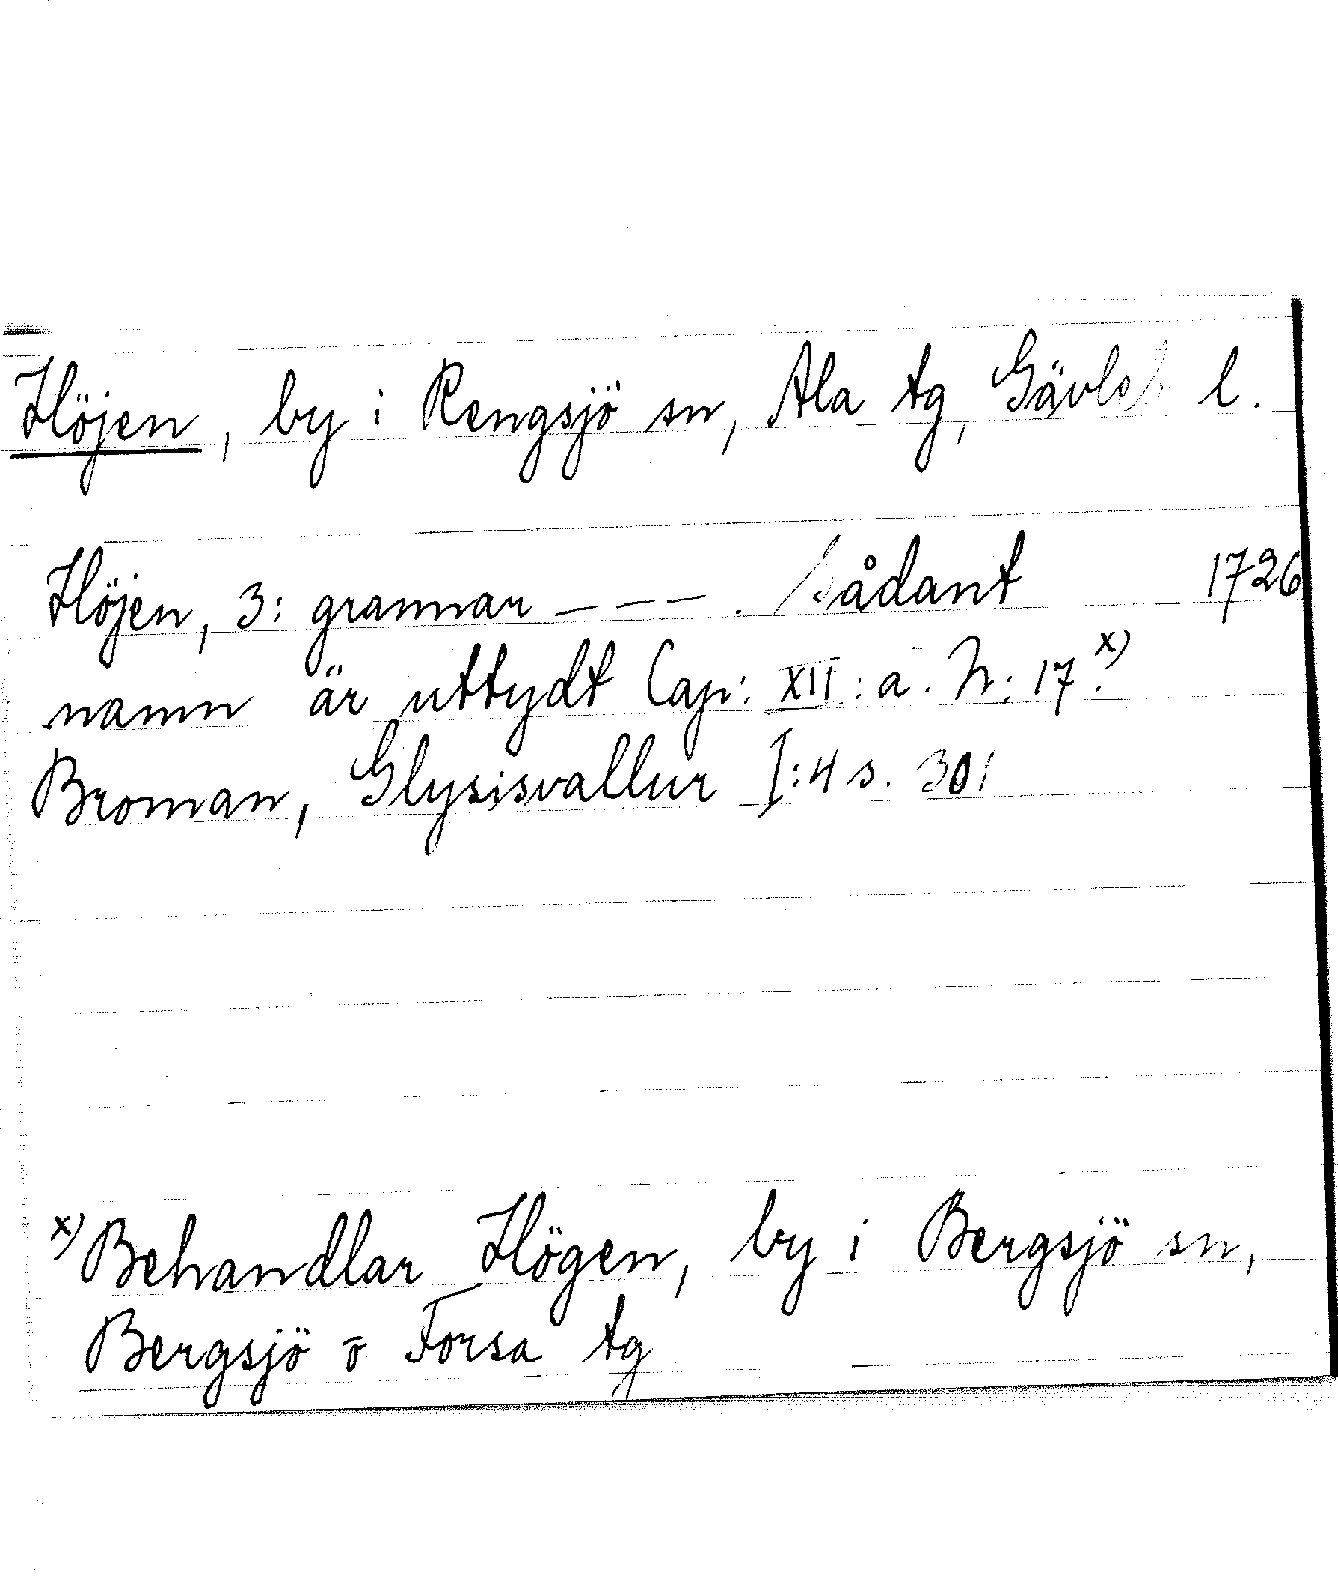 Höjen, by i Rengsjö sn, Ala tg, Gävleb l.
Höjen, 3: grannar – – – . Sådant 1726
namn är uttydt Cap: XII: a. N: 17.x)
Broman, Glysisvallur I:4 s. 301
x) Behandlar Högen, by i Bergsjö sn,
Bergsjö o Forsa tg